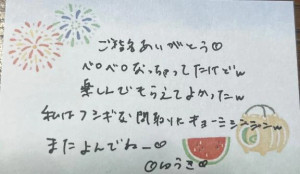 ご指名ありがとう♡
ベロベロなっちゃってたけどw
楽しんでもらえてよかったw
私はフシギな関わりにキョーミシンシンw
またよんでねー♡
♡ゆうき♡